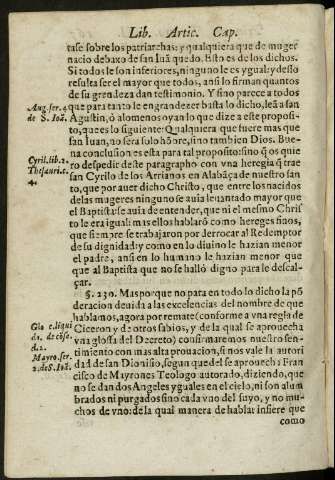 Lib. Artic. Cap.
tase sobre los patriarchas: y qualquiera que de muger
nacio debaxo de san Iuã quedo. Esto es de los dichos.
Si todos le son inferiores, ninguno le es ygual: y desto
resulta ser el mayor que todos, ansi lo firman quantos
de su grandeza dan testimonio. Y sino parece a todos
que para tanto le engrandezer basta lo dicho, leã a san
Aug. ser. 4.
de S. Ioã.
Agustin, ó alomenos oyan lo que dize a este proposi-
to, que es lo siguiente: Qualquiera que fuere mas que
san Iuan, no sera solo hõbre, sino tambien Dios. Bue
na conclusion es esta para tal proposito: sino q̃ os quie
Cyril. lib. 2.
Thesauri. c.
4.
ro despedir deste paragrafo con vna heregia q̃ trae
san Cyrilo de los Arrianos en Alabãça de nuestro san
to, que por auer dicho Christo, que entre los nacidos
de las mugeres ninguno se auia leuantado mayor que
el Baptista: se auia de entender, que ni el mesmo Chris
to le era igual: mas ellos hablarõ como hereges finos,
que siempre se trabajaron por derrocar al Redemptor
de su dignidad: y como en lo diuino le hazian menor
el padre, ansi en lo humano le hazian menor que
que al Baptista que no se halló digno para le descal-
çar.
§. 230. Mas porque no pata en todo lo dicho la põ
deracion deuida a las excelencias del nombre de que
hablamos, agora por remate (conforme a vna regla de
Glo c. liqui
da. de cõse.
d. 2.
Ciceron y de otros sabios, y de la qual se aprouecha
vna glossa del Decreto) confirmaremos nuestro sen-
timiento con mas alta prouacion, si nos vale la autori
Mayro. ser.
2. de S. Ioã.
dad de san Dionisio, segun que del se aprouecha Fran
cisco de Mayrones Teologo autorado, diziendo, que
no se dan dos Angeles yguales en el cielo, ni son alum
brados ni purgados sino cada vno del suyo, y no mu-
chos de vno: de la qual manera de hablar infiere que
como